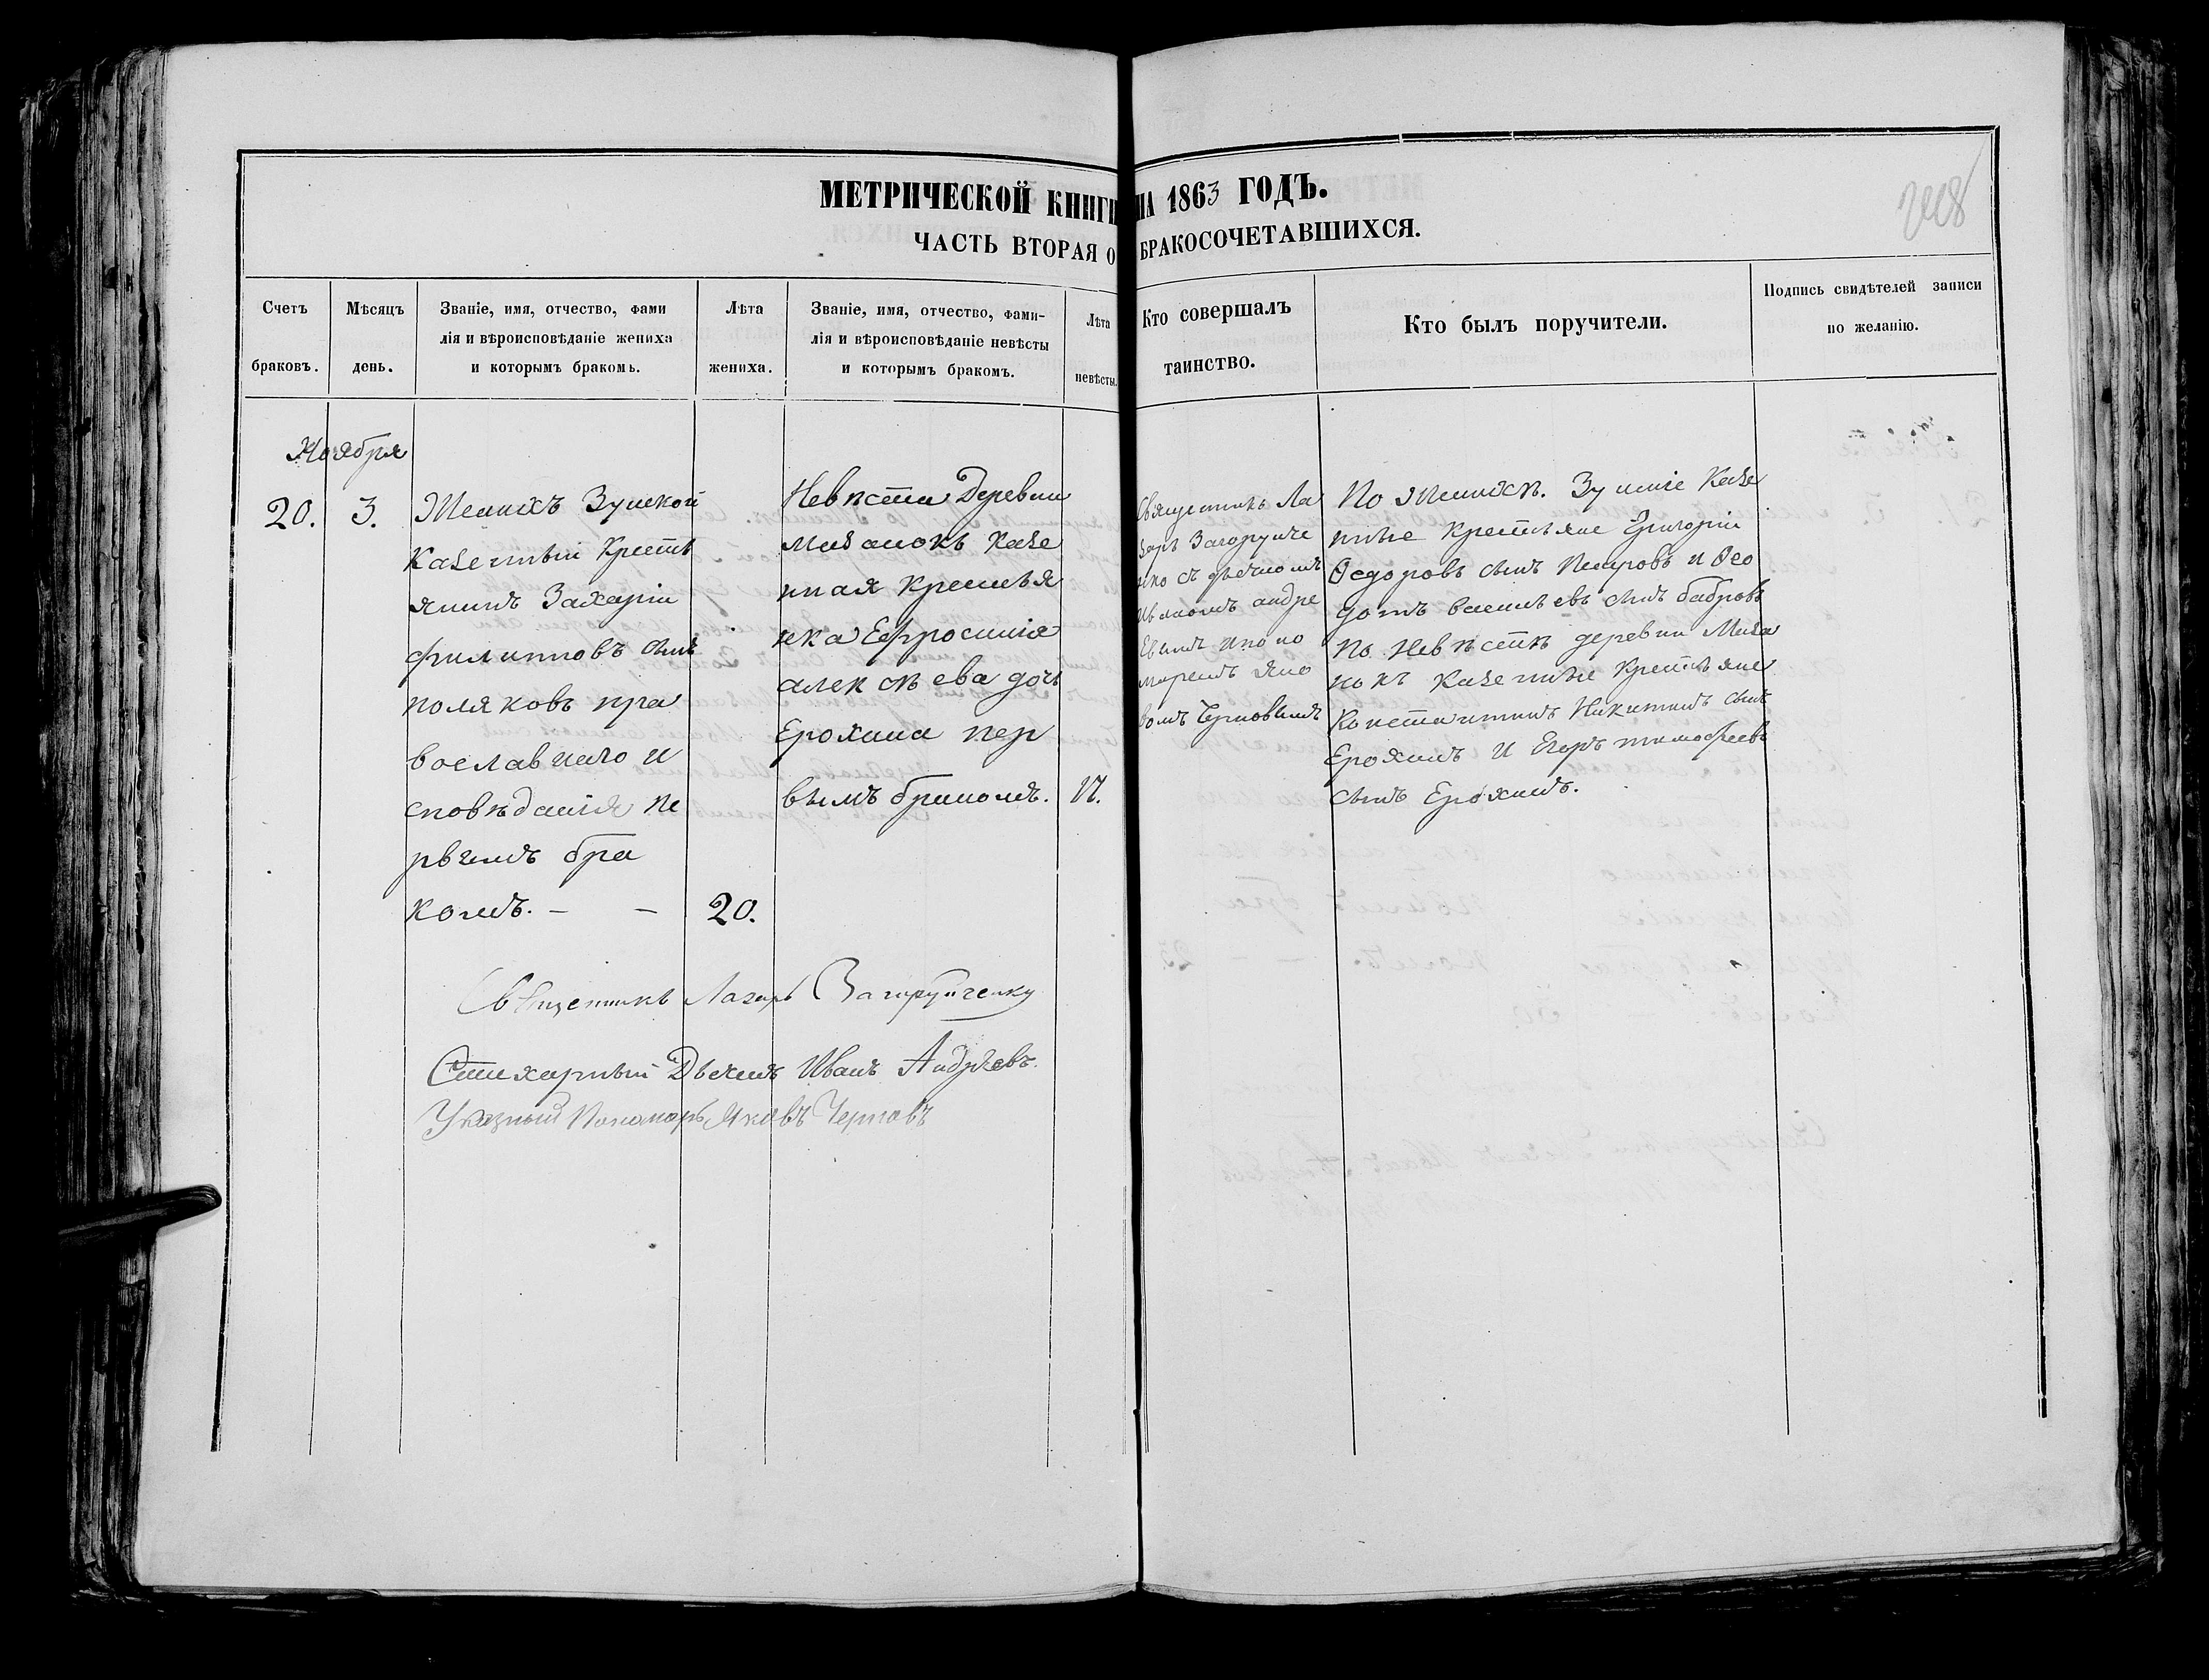 МЕТРИЧЕСКОЙ КНИГИ НА 1863 ГОДЪ.
ЧАСТЬ ВТОРАЯ О БРАКОСОЧЕТАВШИХСЯ.
Счетъ
браковъ.
Мѣсяцъ
день.
Званіе, имя, отчество, фами
лія и вѣроисповѣданіе жениха
и которымъ бракомъ.
Лѣта
жениха.
Званіе, имя, отчество, фами-
лія и вѣроисповѣданіе невѣсты
и которымъ бракомъ.
Лѣта
невѣсты.
Кто совершалъ
таинство.
Кто былъ поручители.
Подпись свидѣтелей записи
по желанію.
Ноября
20. 3.
Женихъ
Казенный Крестъ
янинъ Захарій
филипповъ сынъ
поляковъ пра
вославнаго и
сповѣданія пе
рвымъ бра
комъ. — —
20.
Невѣста Деревни
Казе
нная крестья
нка Ефросинія
алексѣева дочь
Ерохина пер
вымъ бракомъ.
17.
Священникъ Ла
зарь Загоруйче
нко съ дьячкомъ
Иваномъ андре
евымъ и поно
маремъ Яко
вомъ Черновымъ
По женихѣ. Казе
нные Крестьяне Григорій
Ѳедоровъ сынъ Петровъ и Ѳео
дотъ сынъ бабровъ
по Невѣстѣ деревни
казенные Крестьяне
Константинъ Никитинъ сынъ
Ерохинъ и Егоръ тимофеевъ
сынъ Ерохинъ.
Священникъ Лазарь Загоруйченко
Стихарный Дьячекъ Иванъ Андреевъ.
Указный Пономарь Яковъ Черновъ